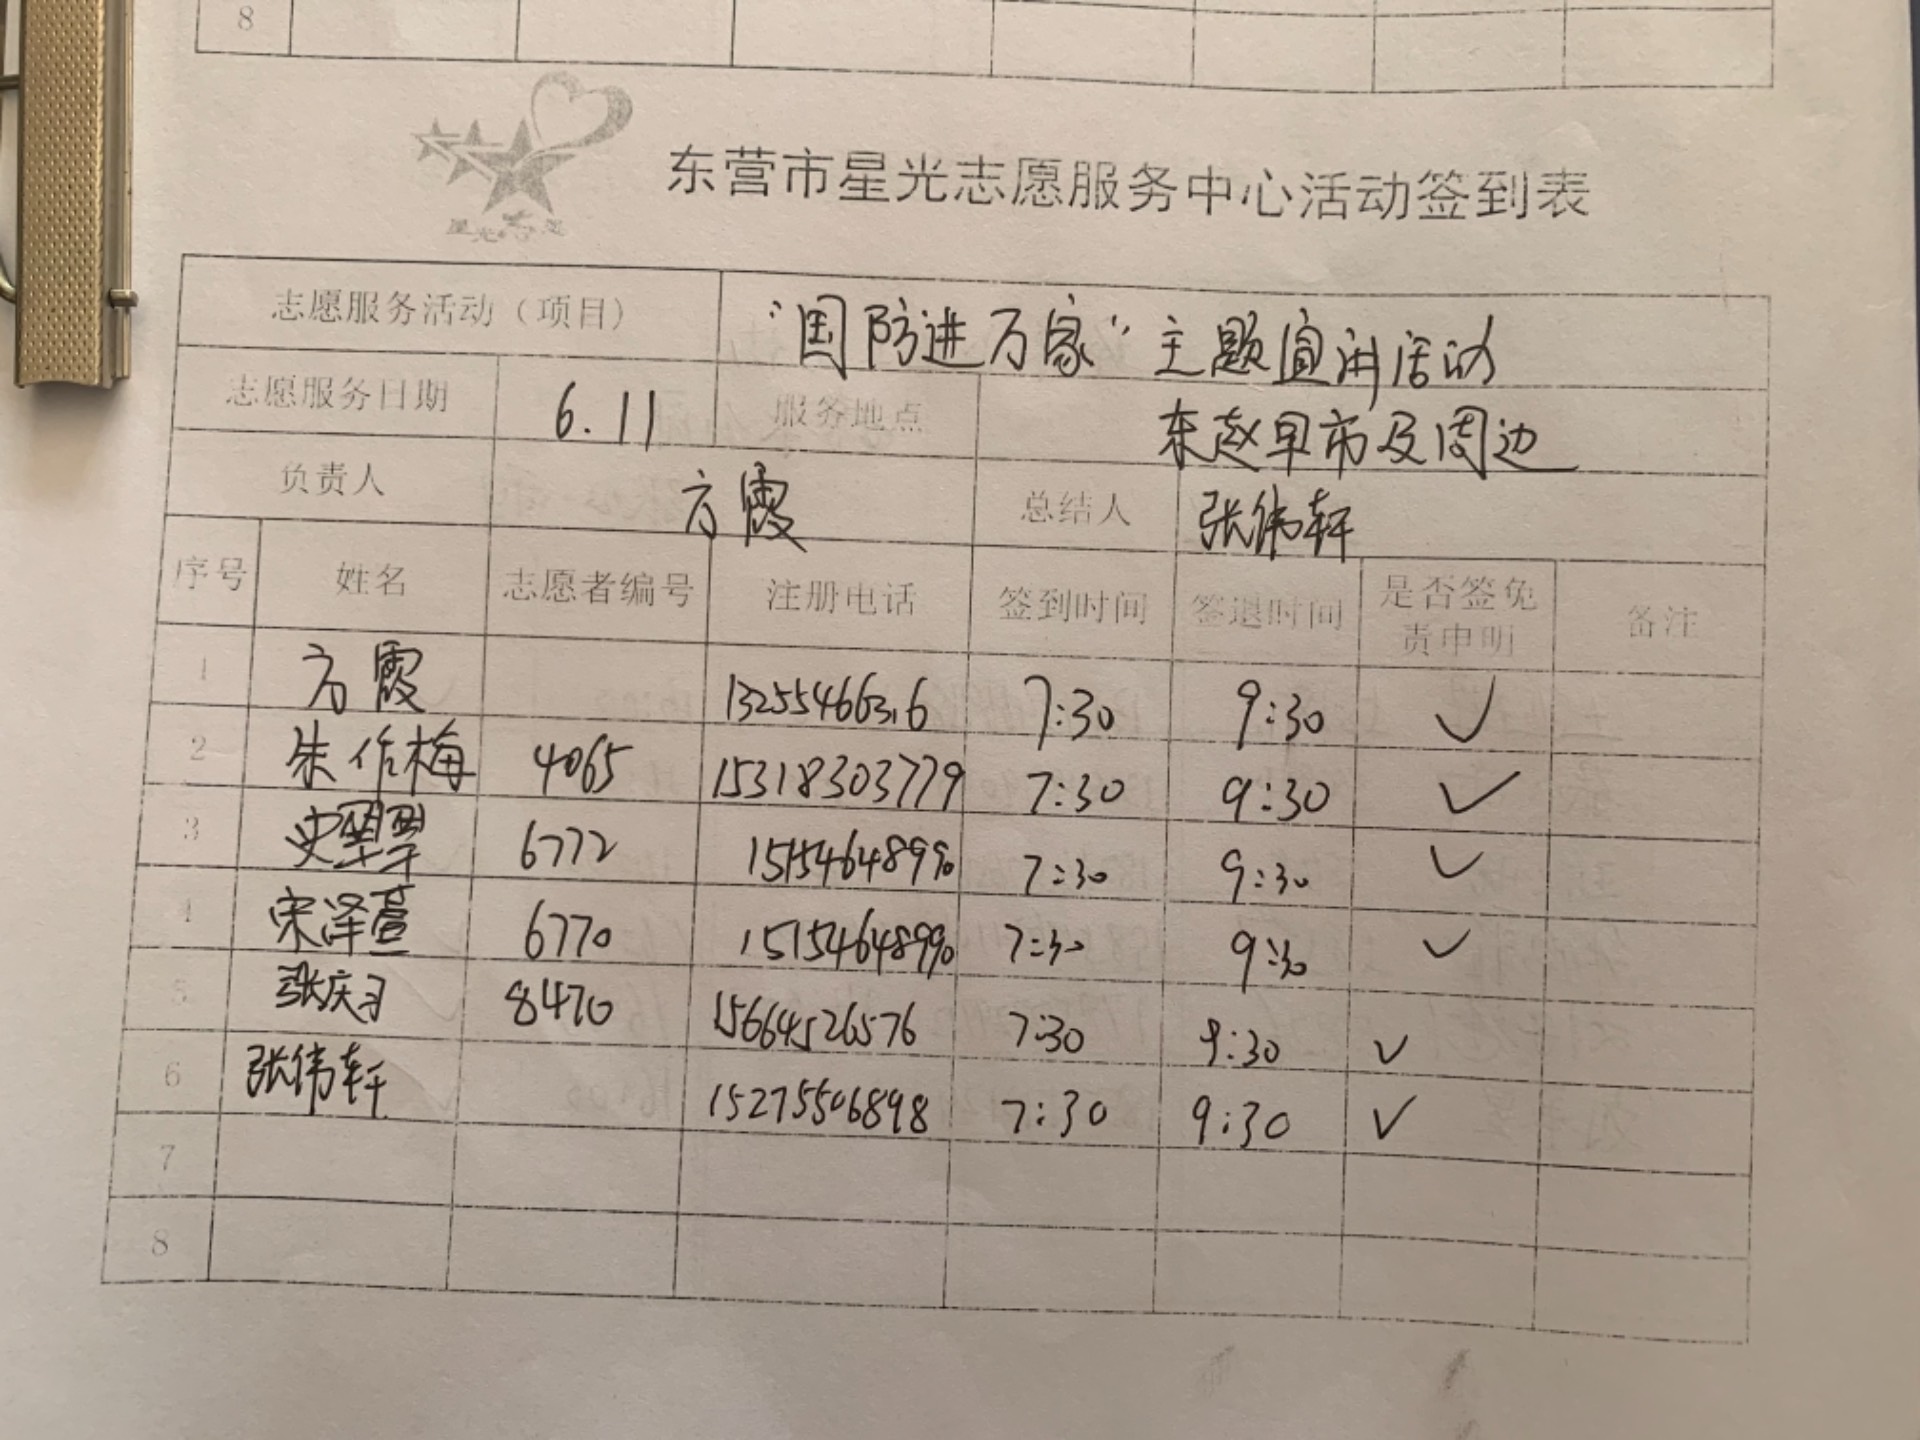 8
东营市星光志愿服务中心活动签到表
志愿服务活动（项目） “国防进万家”主题宣讲活动
志愿服务日期 6.11 服务地点 东赵早市及周边
负责人 方霞 总结人 张伟轩
序号 姓名 志愿者编号 注册电话 签到时间 签退时间 是否签免责申明 备注
1 方霞 7:30 9:30 ✓
2 朱作梅 4065 15318303779 7:30 9:30 ✓
3 6772 15154648990 7:30 9:30 ✓
4 宋泽萱 6770 15154648990 7:30 9:30 ✓
5 张庆 8470 15664526576 7:30 9:30 ✓
6 张伟轩 15275506898 7:30 9:30 ✓
7
8